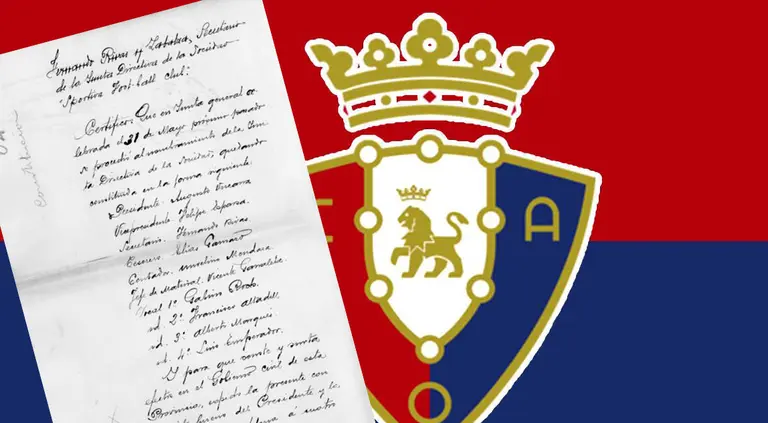 Fernando Rivas y Zabalza, Secretario
de la Junta Directiva de la Sociedad
"Sportiva Foot-ball Club".
Certifico: Que en Junta general ce
lebrada el 31 de Mayo próximo pasado
se procedió al nombramiento de la Jun
ta Directiva de la Sociedad, quedando
constituida en la forma siguiente
Presidente. Augusto Vizcarra
Vicepresidente Felipe Esparza.
Secretario. Fernando Rivas
Tesorero. Elías
Contador. Marcelino Mendaza
Jefe de Material. Vicente
Vocal 1º Gabino
id. 2º Francisco Altadill
id. 3º Alberto Marqués.
id. 4º Luis Emperador.
Y para que conste y surta
efectos en el Gobierno civil de esta
Provincia, expido la presente con
bueno del Presidente y le
á cuatro
A
O